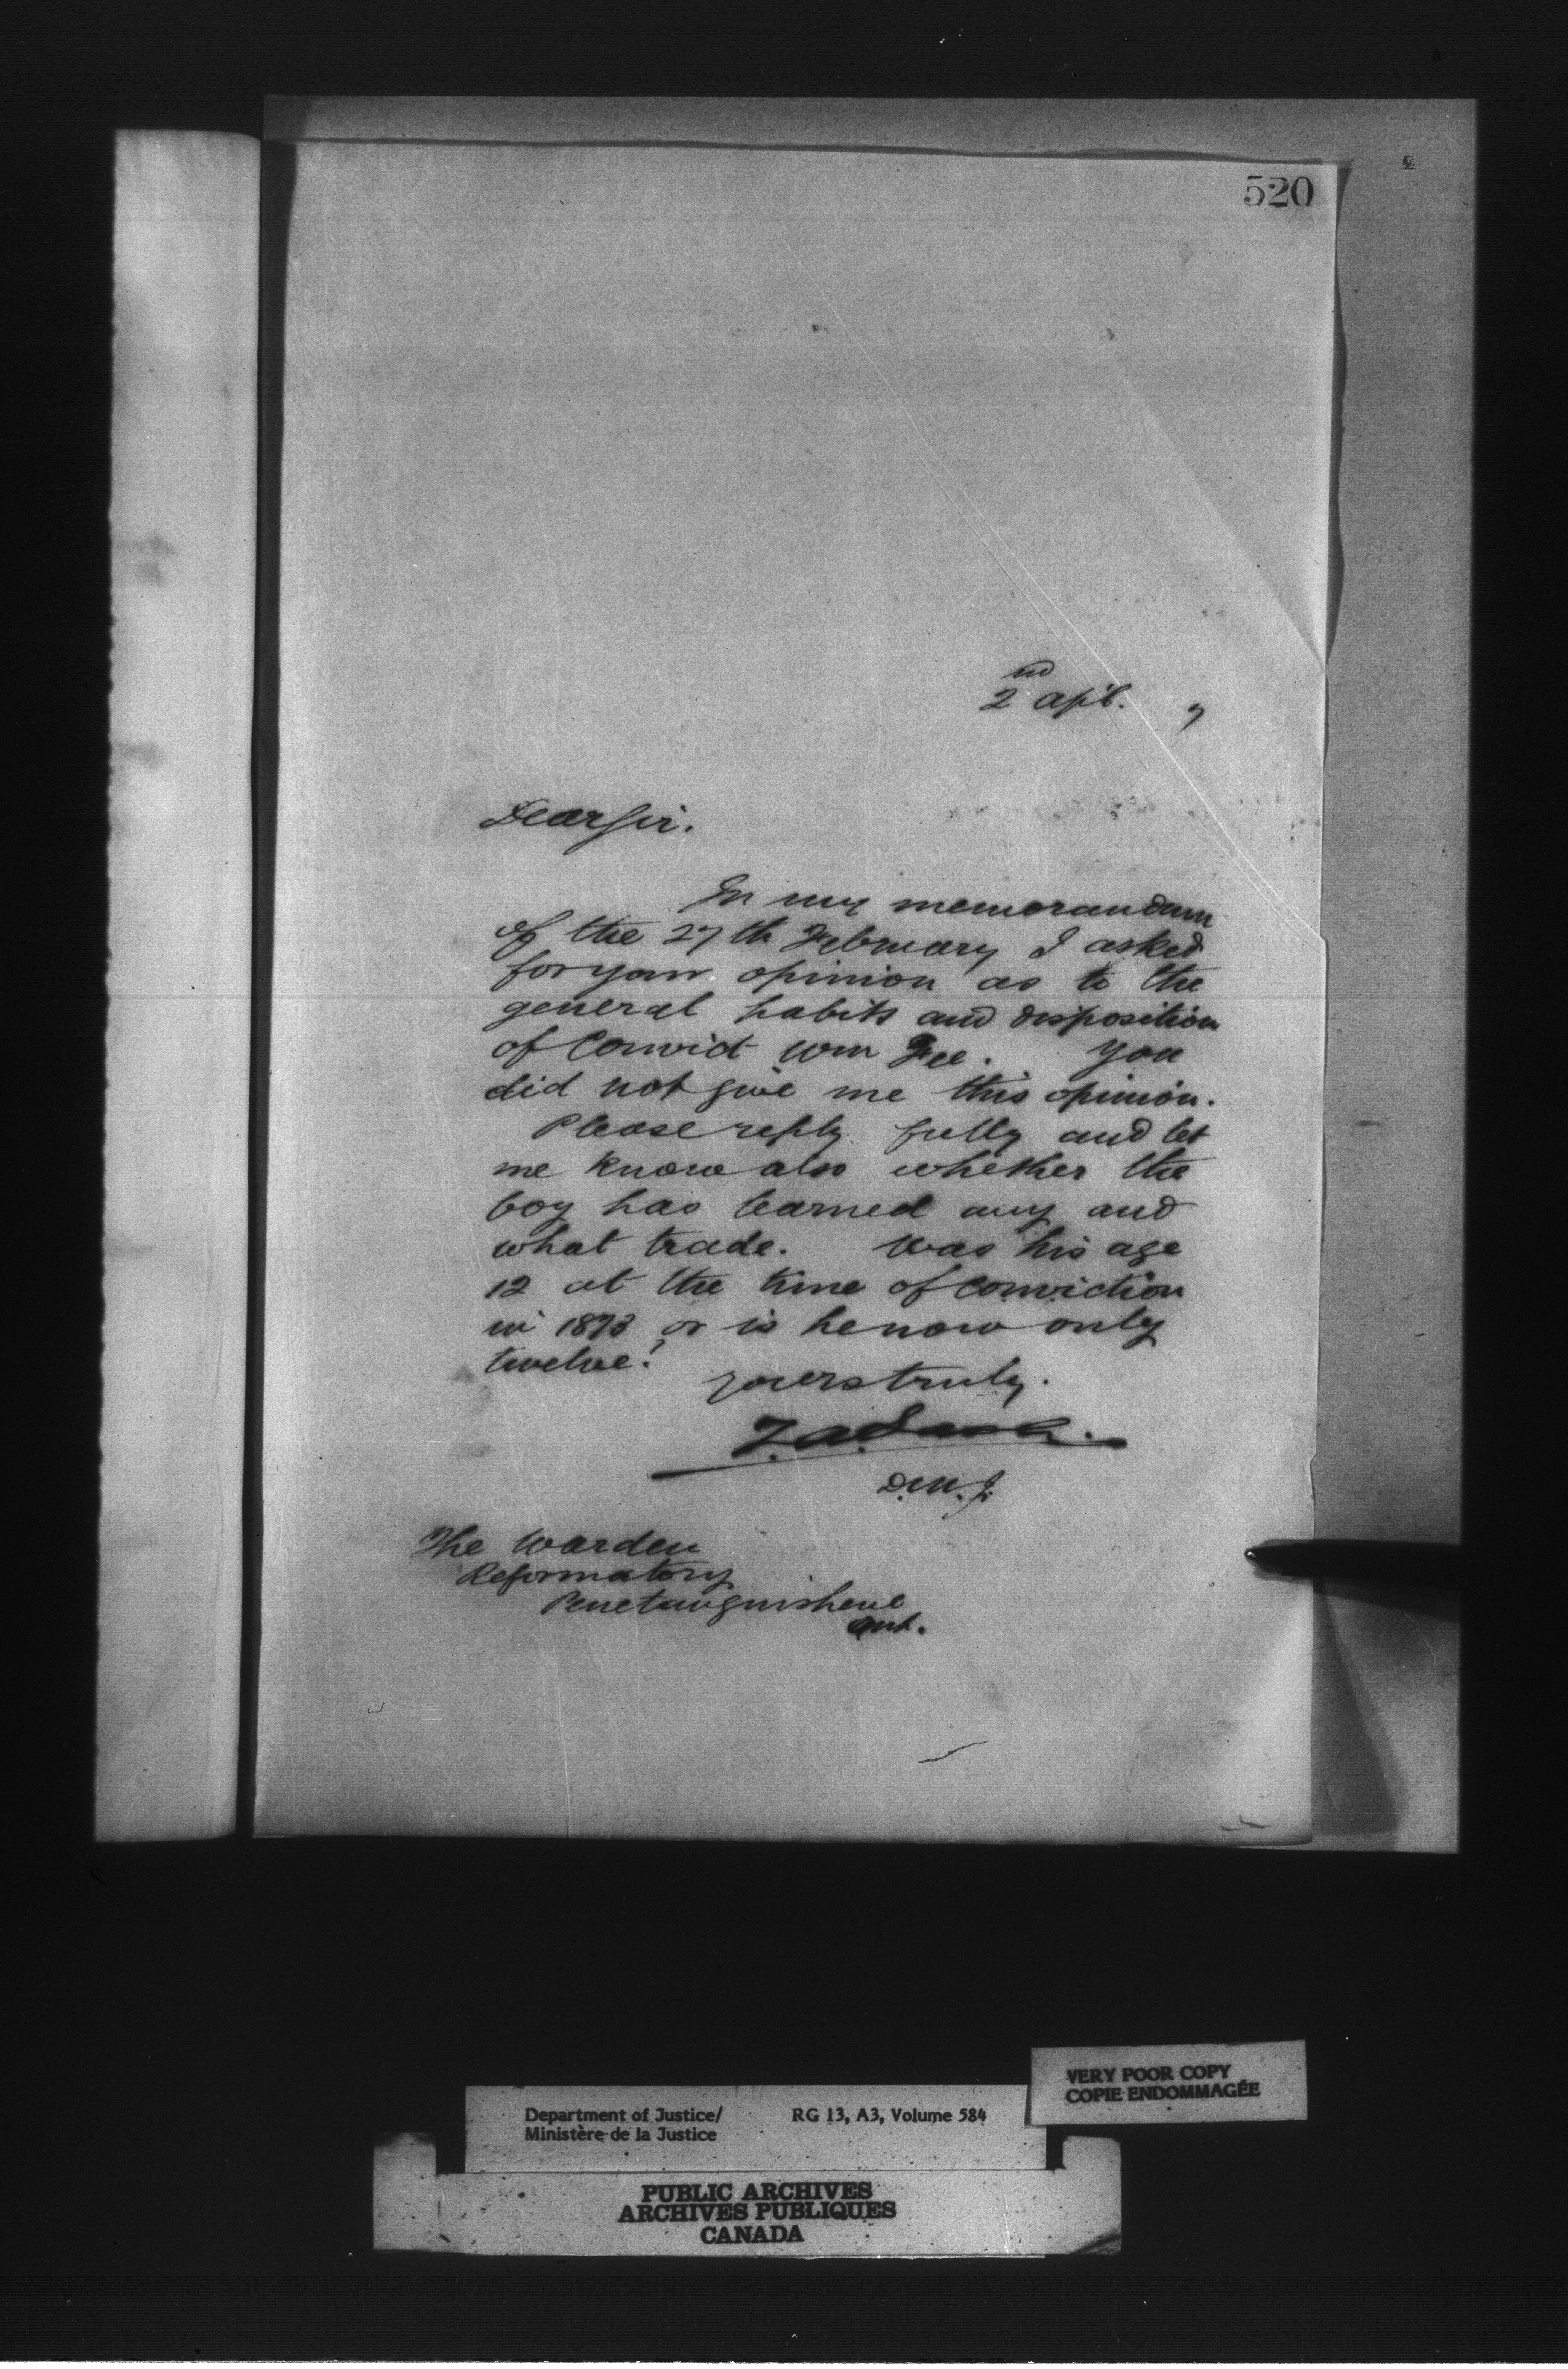 520
2nd Apl. 7
Dear Sir.
In my memorandum
of the 27th February I asked
for your opinion as to the
general habits and disposition
of Convict Wm Fee. You
did not give me this opinion.
Please reply fully and let
me know also whether the
boy has learned any and
what trade. Was his age
12 at the time of conviction
in 1873 or is he now only
twelve?
Yours truly.
Z.A. Lash.
D.M.J.
The Warden
Reformatory
Penetanguishene
Ont.
VERY POOR COPY
COPIE ENDOMMAGÉE
Department of Justice/ RG 13, A3, Volume 584
Ministère de la Justice
PUBLIC ARCHIVES
ARCHIVES PUBLIQUES
CANADA